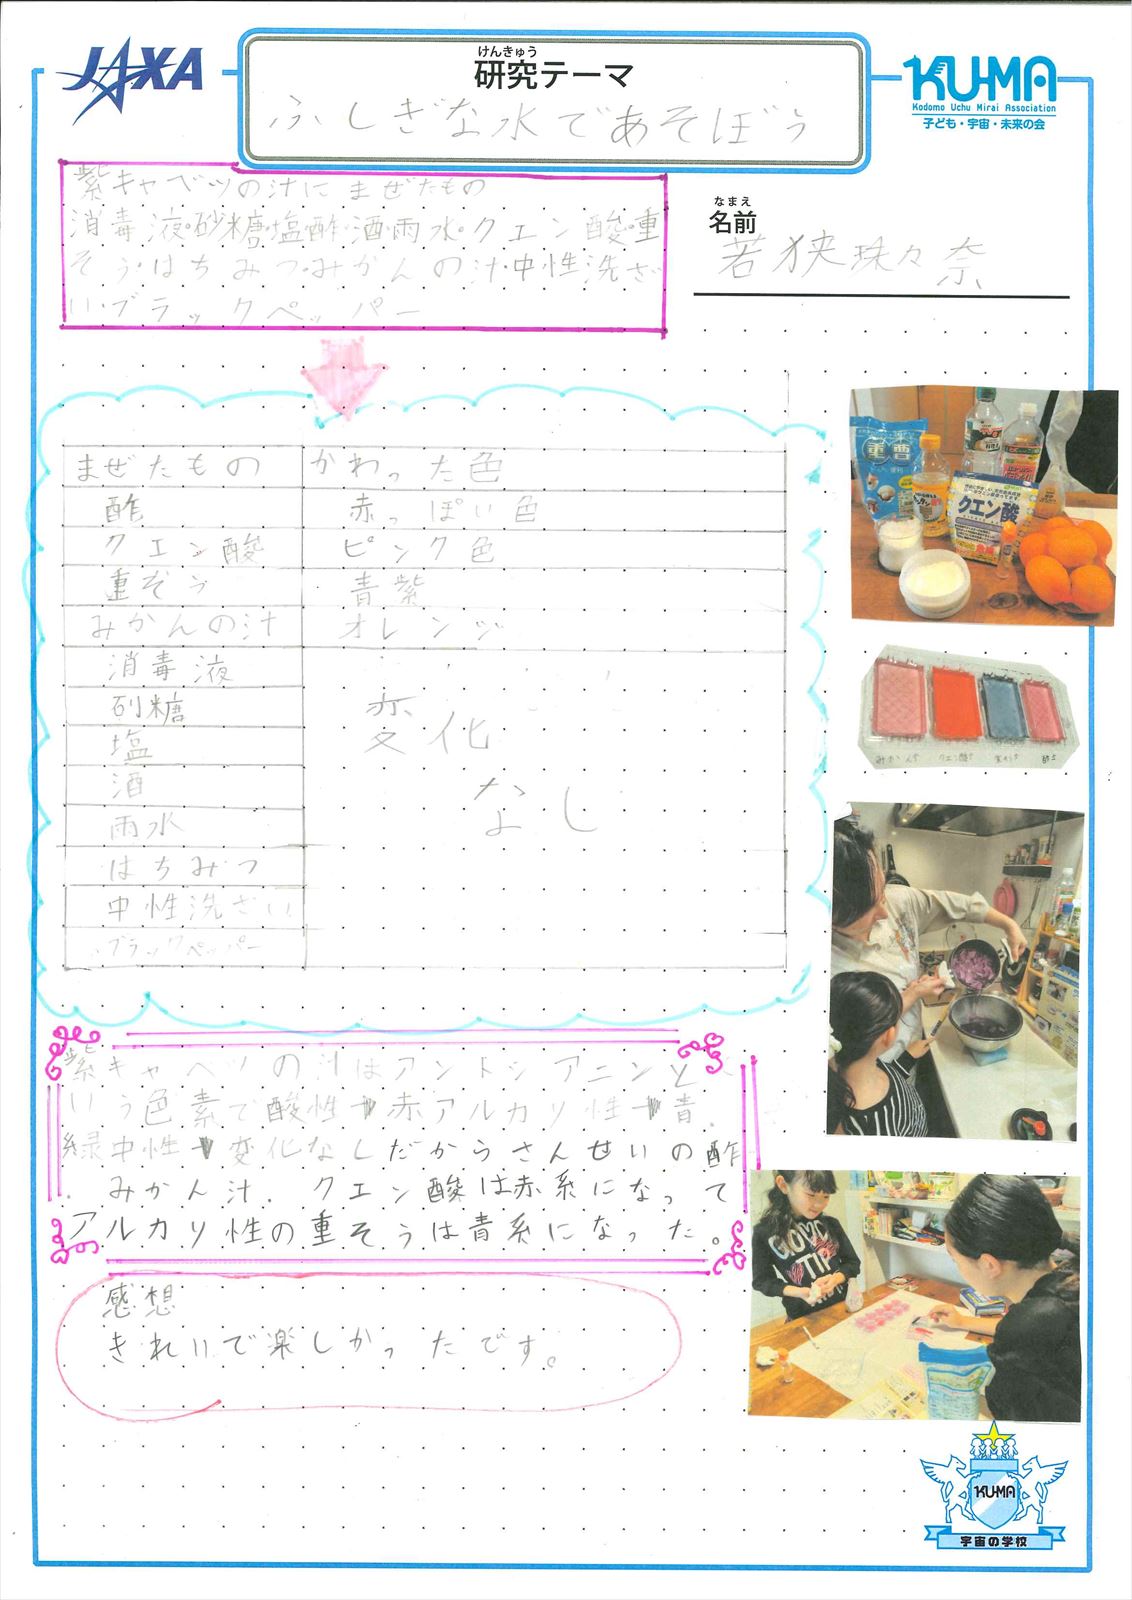 JAXA
けんきゅう
研究テーマ
ふしぎな水であそぼう
KU-MA
Kodomo Uchu Mirai Association
子ども・宇宙・未来の会
紫キャベツの汁にまぜたもの
消毒液・砂糖・塩・酢・酒・雨水・クエン酸・重
そう・はちみつ・みかんの汁・中性洗ざ
い・ブラックペッパー
なまえ
名前
若狭珠々奈
まぜたもの かわった色
酢 赤っぽい色
クエン酸 ピンク色
重ぞう 青紫
みかんの汁 オレンジ
消毒液
砂糖
塩
酒
雨水
はちみつ
中性洗ざい
ブラックペッパー
変化
なし
重曹
クエン酸
紫キャベツの汁はアントシアニンと
いう色素で酸性→赤アルカリ性→青.
緑中性→変化なしだからさんせいの酢
.みかん汁.クエン酸は赤系になって
アルカリ性の重そうは青系になった。
感想
きれいで楽しかったです。
KU-MA
宇宙の学校